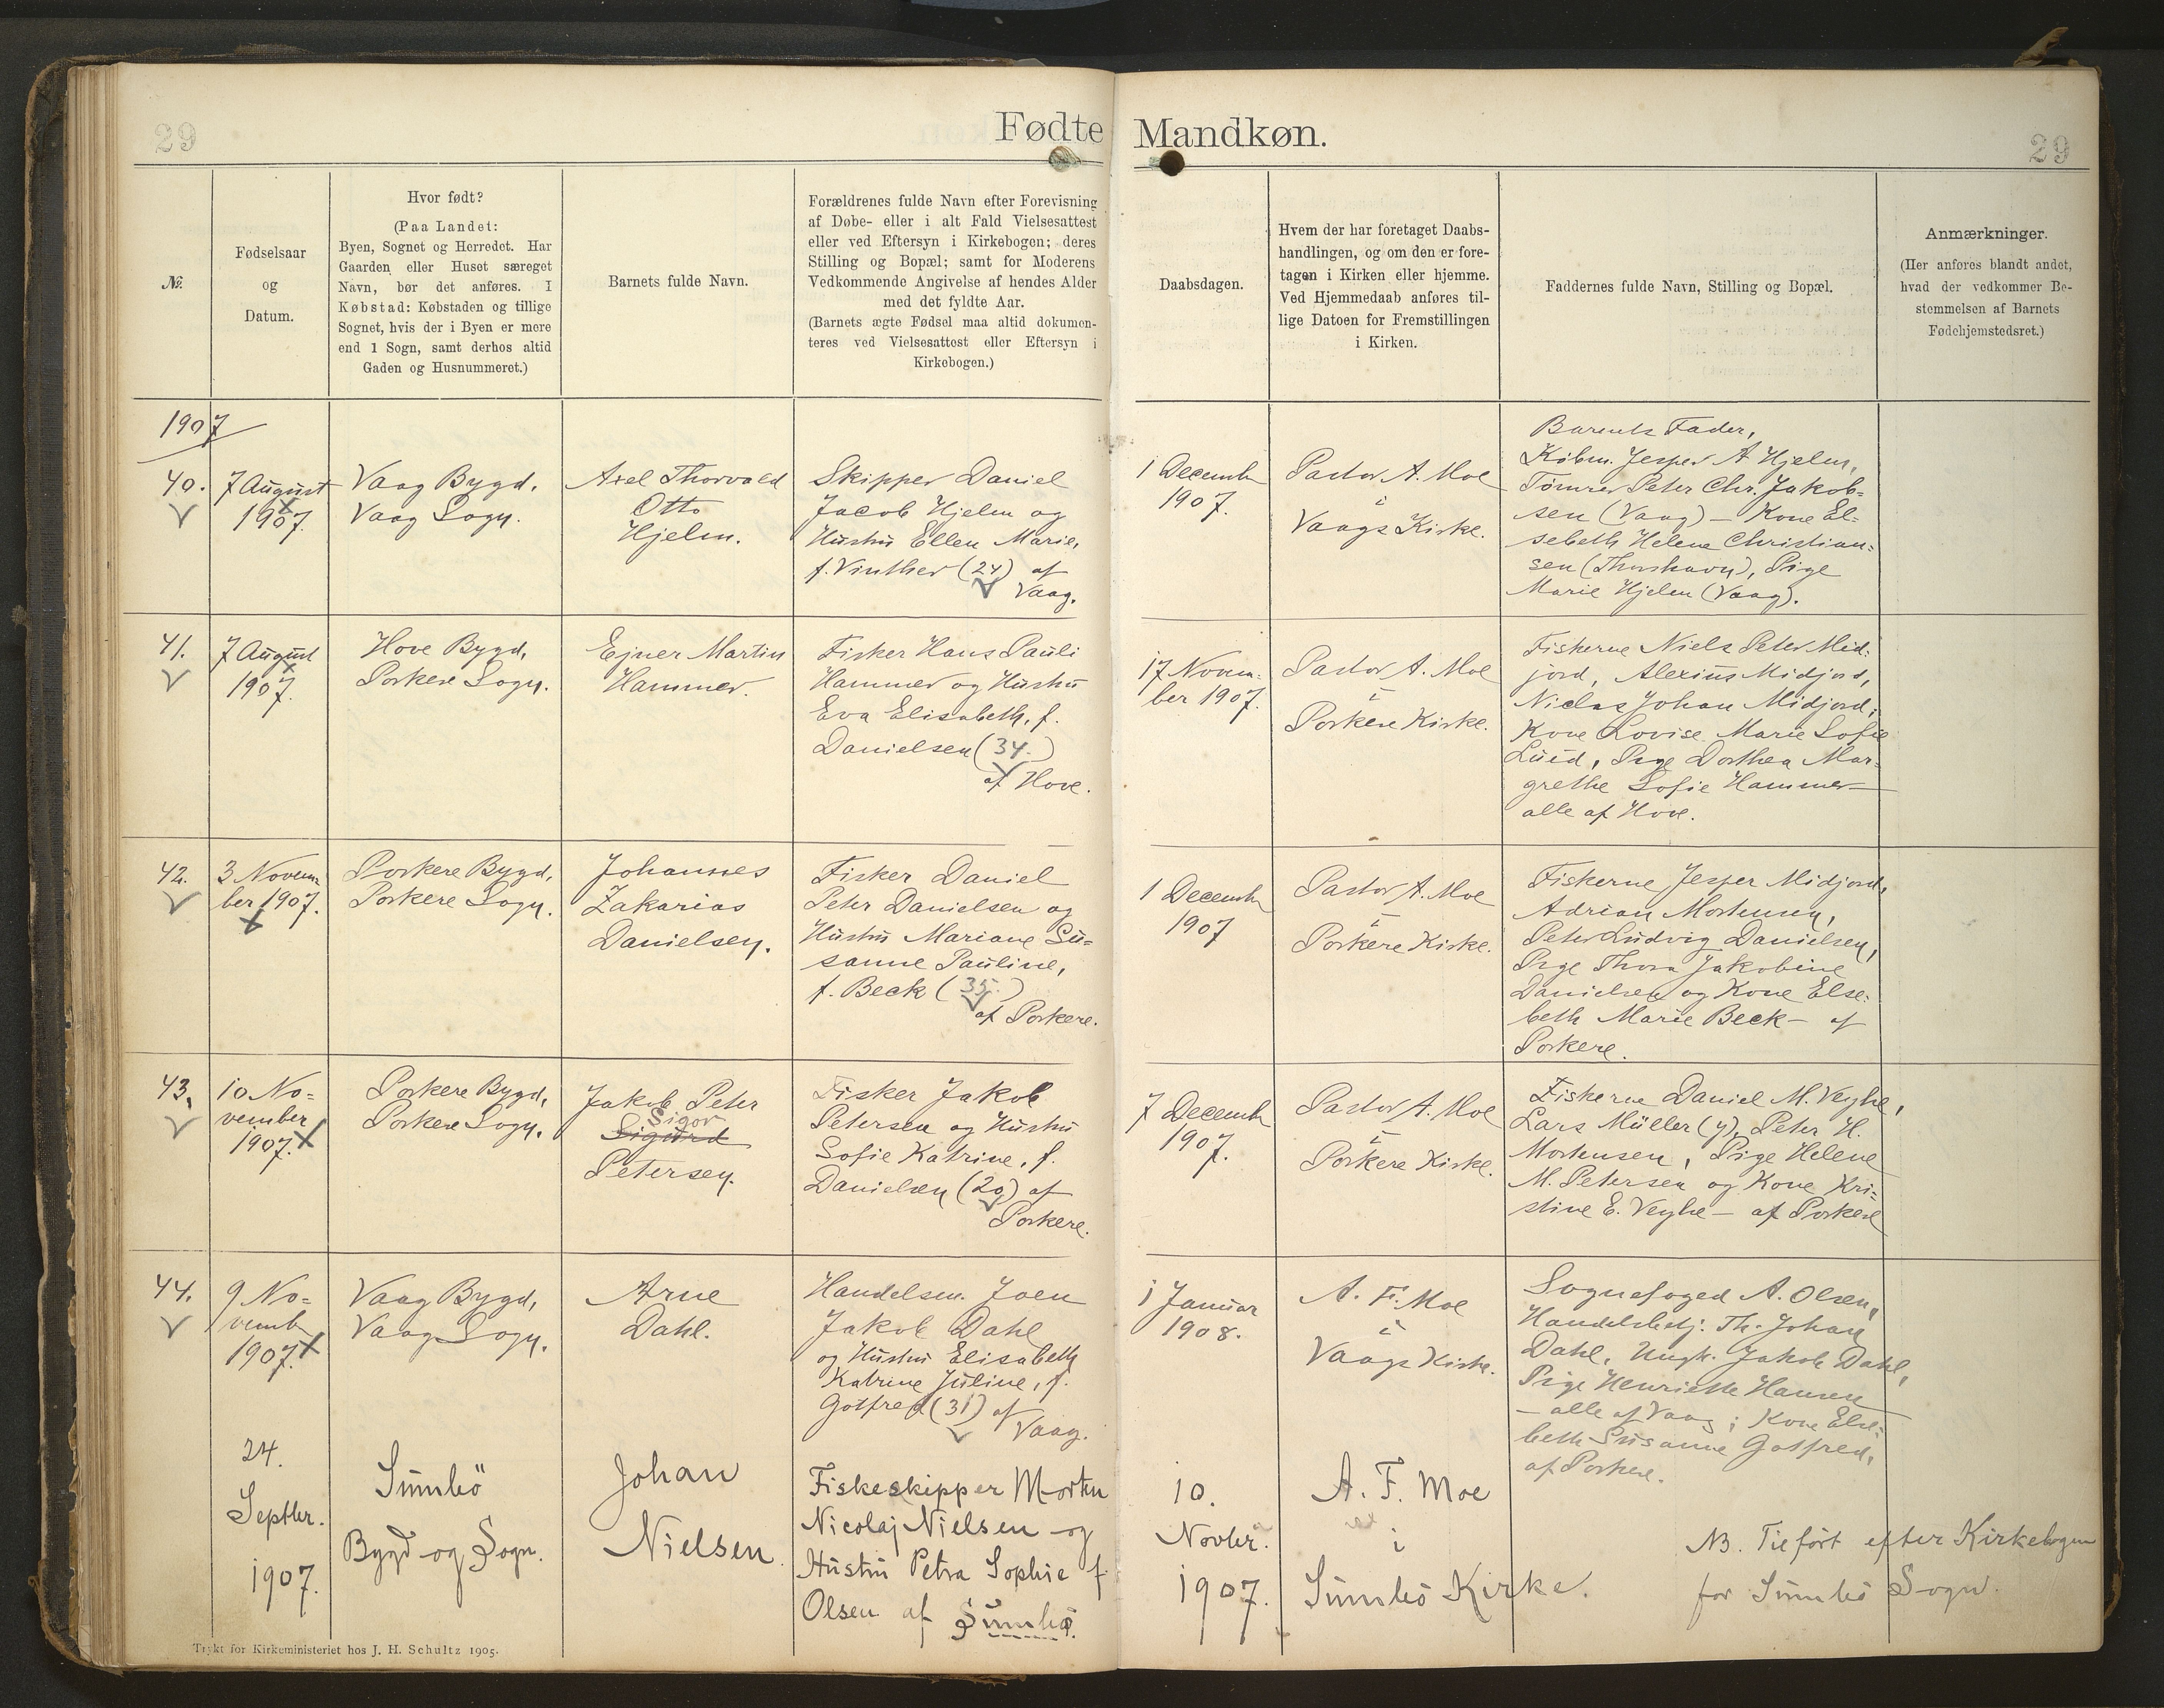 29
Fødte
Mandkøn.
29
№.
Fødselsaar
og
Datum.
Hvor født?
(Paa Landet:
Byen, Sognet og Herredet. Har
Gaarden eller Huset særeget
Navn, bør det anføres. I
Købstad: Købstaden og tillige
Sognet, hvis der i Byen er mere
end 1 Sogn, samt derhos altid
Gaden og Husnummeret.)
Barnets fulde Navn.
Forældrenes fulde Navn efter Forevisning
af Døbe- eller i alt Fald Vielsesattest
eller ved Eftersyn i Kirkebogen; deres
Stilling og Bopæl; samt for Moderens
Vedkommende Angivelse af hendes Alder
med det fyldte Aar.
(Barnets ægte Fødsel maa altid dokumen-
teres ved Vielsesattest eller Eftersyn i
Kirkebogen.)
Daabsdagen.
Hvem der har foretaget Daabs-
handlingen, og om den er fore-
tagen i Kirken eller hjemme.
Ved Hjemmedaab anføres til-
lige Datoen for Fremstillingen
i Kirken.
Faddernes fulde Navn, Stilling og Bopæl.
Anmærkninger.
(Her anføres blandt andet,
hvad der vedkommer Be-
stemmelsen af Barnets
Fødehjemstedsret.)
1907
40.
7 August
1907.
Vaag Bygd,
Vaag Sogn.
Axel Thorvald
Otto
Hjelm.
Skipper Daniel
Jacob Hjelm og
Hustru Ellen Marie,
f. Vinther (24) af
Vaag.
1 Decemb
1907.
Pastor A. Moe
i
Vaags Kirke.
Barnets Fader,
Købm. Jesper A Hjelm,
Tømrer Peter Chr. Jakob=
sen (Vaag) — Kone El=
sebeth Helene Christian=
sen (Thorshavn), Pige
Marie Hjelm (Vaag).
41.
7 August
1907.
Hove Bygd,
Porkere Sogn.
Ejner Martin
Hammer.
Fisker Hans Pauli
Hammer og Hustru
Eva Elisabeth, f.
Danielsen (34.)
af Hove.
17 Novem=
ber 1907.
Pastor A. Moe
i
Porkere Kirke.
Fiskerne Niels Peter Mid=
jord, Alexius Midjord,
Niclas Johan Midjord,
Kone Lovise Marie Sofie
Luid, Pige Dorthea Mar=
grethe Sofie Hammer —
alle af Hove.
42.
3 Novem=
ber 1907.
Porkere Bygd,
Porkere Sogn.
Johannes
Zakarias
Danielsen.
Fisker Daniel
Peter Danielsen og
Hustru Mariane Su=
sanne Pauline,
f. Beck (35.)
af Porkere.
1 Decemb
1907
Pastor A. Moe
i
Porkere Kirke.
Fiskerne Jesper Midjord,
Adrian Mortensen,
Peter Ludvig Danielsen,
Pige Thora Jakobine
Danielsen og Kone Else=
beth Marie Beck — af
Porkere.
43.
10 No=
vember
1907.
Porkere Bygd,
Porkere Sogn.
Jakob Peter
Sigor
Sigurd
Petersen.
Fisker Jakob
Petersen og Hustru
Sofie Katrine, f.
Danielsen (20) af
Porkere.
7 Decemb
1907.
Pastor A. Moe
i
Porkere Kirke.
Fiskerne Daniel M. Veyhe,
Lars Müller (y), Peter H.
Mortensen, Pige Helene
M. Petersen og Kone Kri=
stine E. Veyhe — af Porkere
44.
9 No=
vemb
1907.
Vaag Bygd,
Vaag Sogn.
Arne
Dahl.
Handelsm. Joen
Jakob Dahl
og Hustru Elisabeth
Katrine Juline, f.
Gotfred (31) af
Vaag.
1 Januar
1908.
A. F. Moe
i
Vaags Kirke.
Sognefoged A. Olsen,
Handelsbetj. Th. Johan
Dahl, Ungk. Jakob Dahl,
Pige Henriette Hansen
— alle af Vaag; Kone Else=
beth Susanne Gotfred,
af Porkere.
24.
Septbr.
1907.
Sumbö
Bygd og Sogn.
Johan
Nielsen.
Fiskeskipper Morten
Nicolaj Nielsen og
Hustru Petra Sophie f.
Olsen af Sumbö.
10.
Novbr.
1907.
A. F. Moe
i
Sumbö Kirke.
NB. Tilført efter Kirkebogen
for Sumbö Sogn.
Trykt for Kirkeministeriet hos J. H. Schultz 1905.